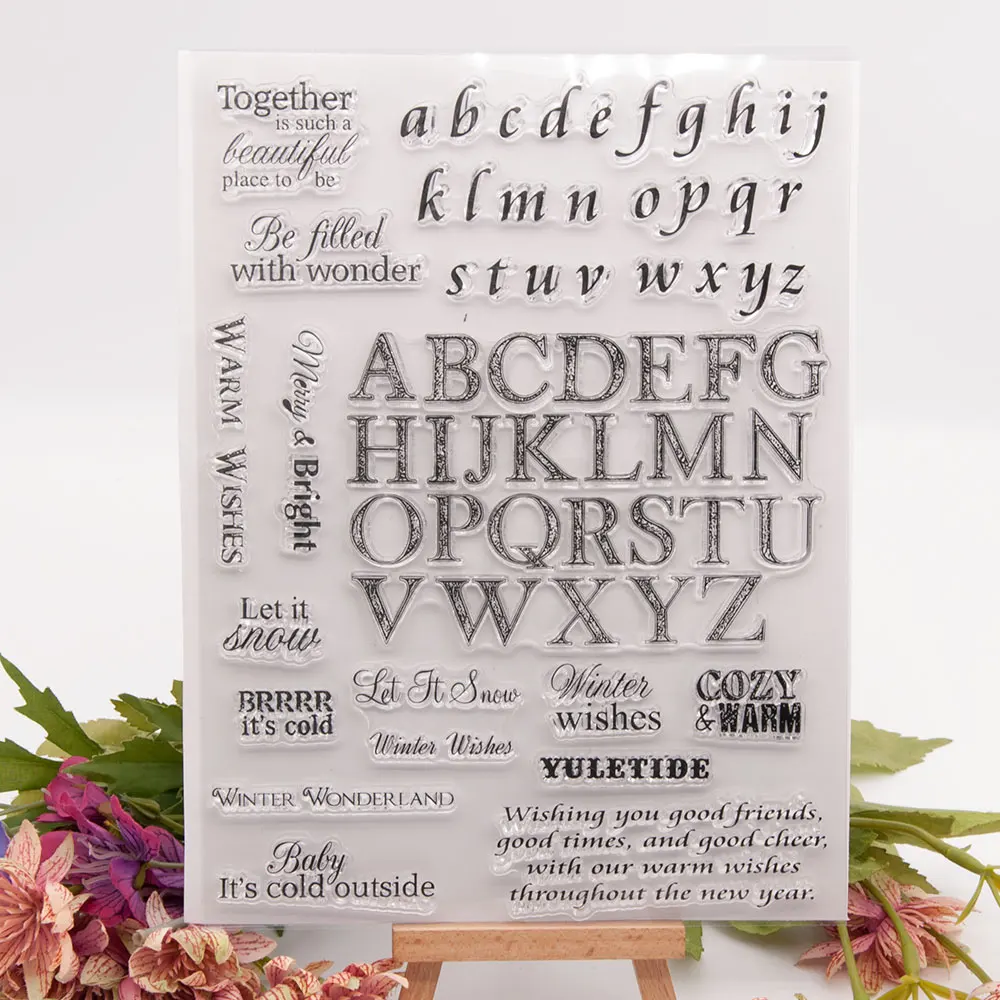 Together
is such a
beautiful
place to be
Be filled
with wonder
a b c d e f g h i j
k l m n o p q r
s t u v w x y z
WARM WISHES
Merry & Bright
A B C D E F G
H I J K L M N
O P Q R S T U
V W X Y Z
Let it
snow
BRRRR
it's cold
Let It Snow
Winter Wishes
Winter
wishes
COZY
& WARM
YULETIDE
WINTER WONDERLAND
Baby
It's cold outside
Wishing you good friends,
good times, and good cheer,
with our warm wishes
throughout the new year.